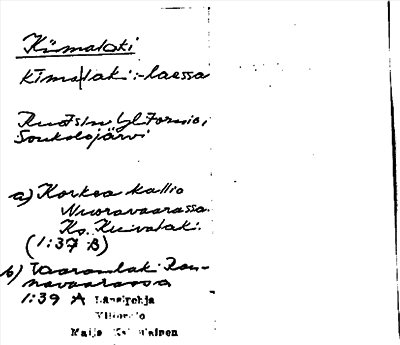 Kiimalaki
kīmalaki: -laessa
Ruotsin Ylitornio,
Soukolojärvi
a) Korkea kallio
Nuoravaarassa.
Ks. Kuivalaki.
(1:37 B)
b) Vaaranlaki Ran-
navaarassa
1:39 A Länsipohja
Ylitornio
Maija